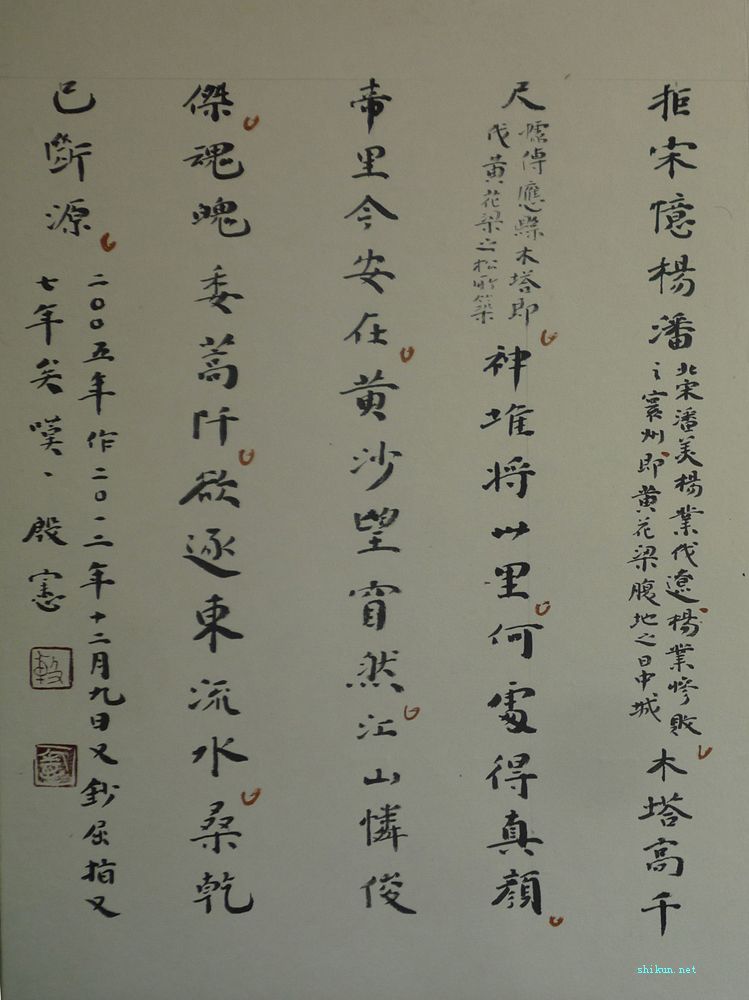 拒宋憶楊潘
北宋潘美楊業伐遼楊業慘敗
之寰州即黄花梁腹地之日中城
木塔高千
尺
據傳應縣木塔即
伐黄花梁之松所築
神堆將卅里何處得真顏
帝里今安在黄沙望窅然江山憐俊
傑魂魄委蒿阡欲逐東流水桑乾
已斷源
二〇〇五年作二〇一二年十二月九日又鈔屈指又
七年矣嘆、殷憲
shikun.net